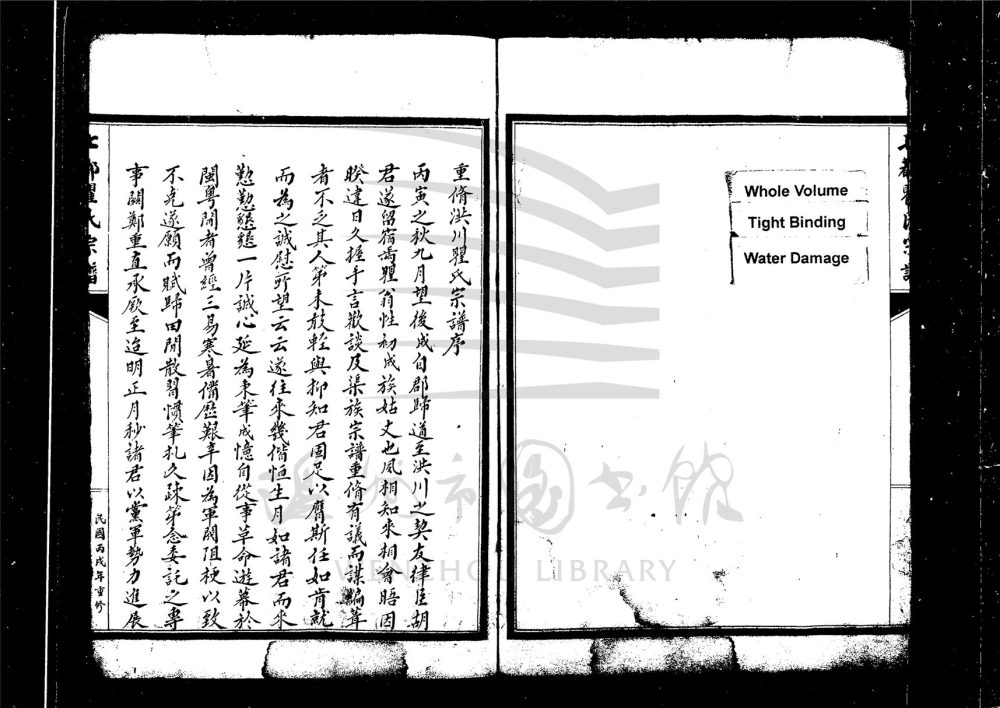 Whole Volume
Tight Binding
Water Damage
重脩洪川瞿氏宗譜序
丙寅之秋九月望後成自郡歸道至洪川之契友律臣胡
君遂留宿焉瞿翁性初成族姑丈也夙相知來相會晤因
睽違日久握手言歡談及渠族宗譜重脩有議而謀編葺
者不乏其人第未敢輕與抑知君固足以膺斯任如肯就
而為之誠慰所望云云遂往來幾偕恒生月如諸君而來
懃懃懇懇一片誠心延為秉筆成憶自從事革命遊幕於
閩粵間者曾經三易寒暑備歷艱辛因為軍閥阻梗以致
不克遂願而賦歸田閒散習慣筆札久疎第念委託之專
事關鄭重直承厥至迨明正月杪諸君以黨軍勢力進展
瞿氏宗譜
民國丙戌年重修
溫州市圖書館
WENZHOU LIBRARY